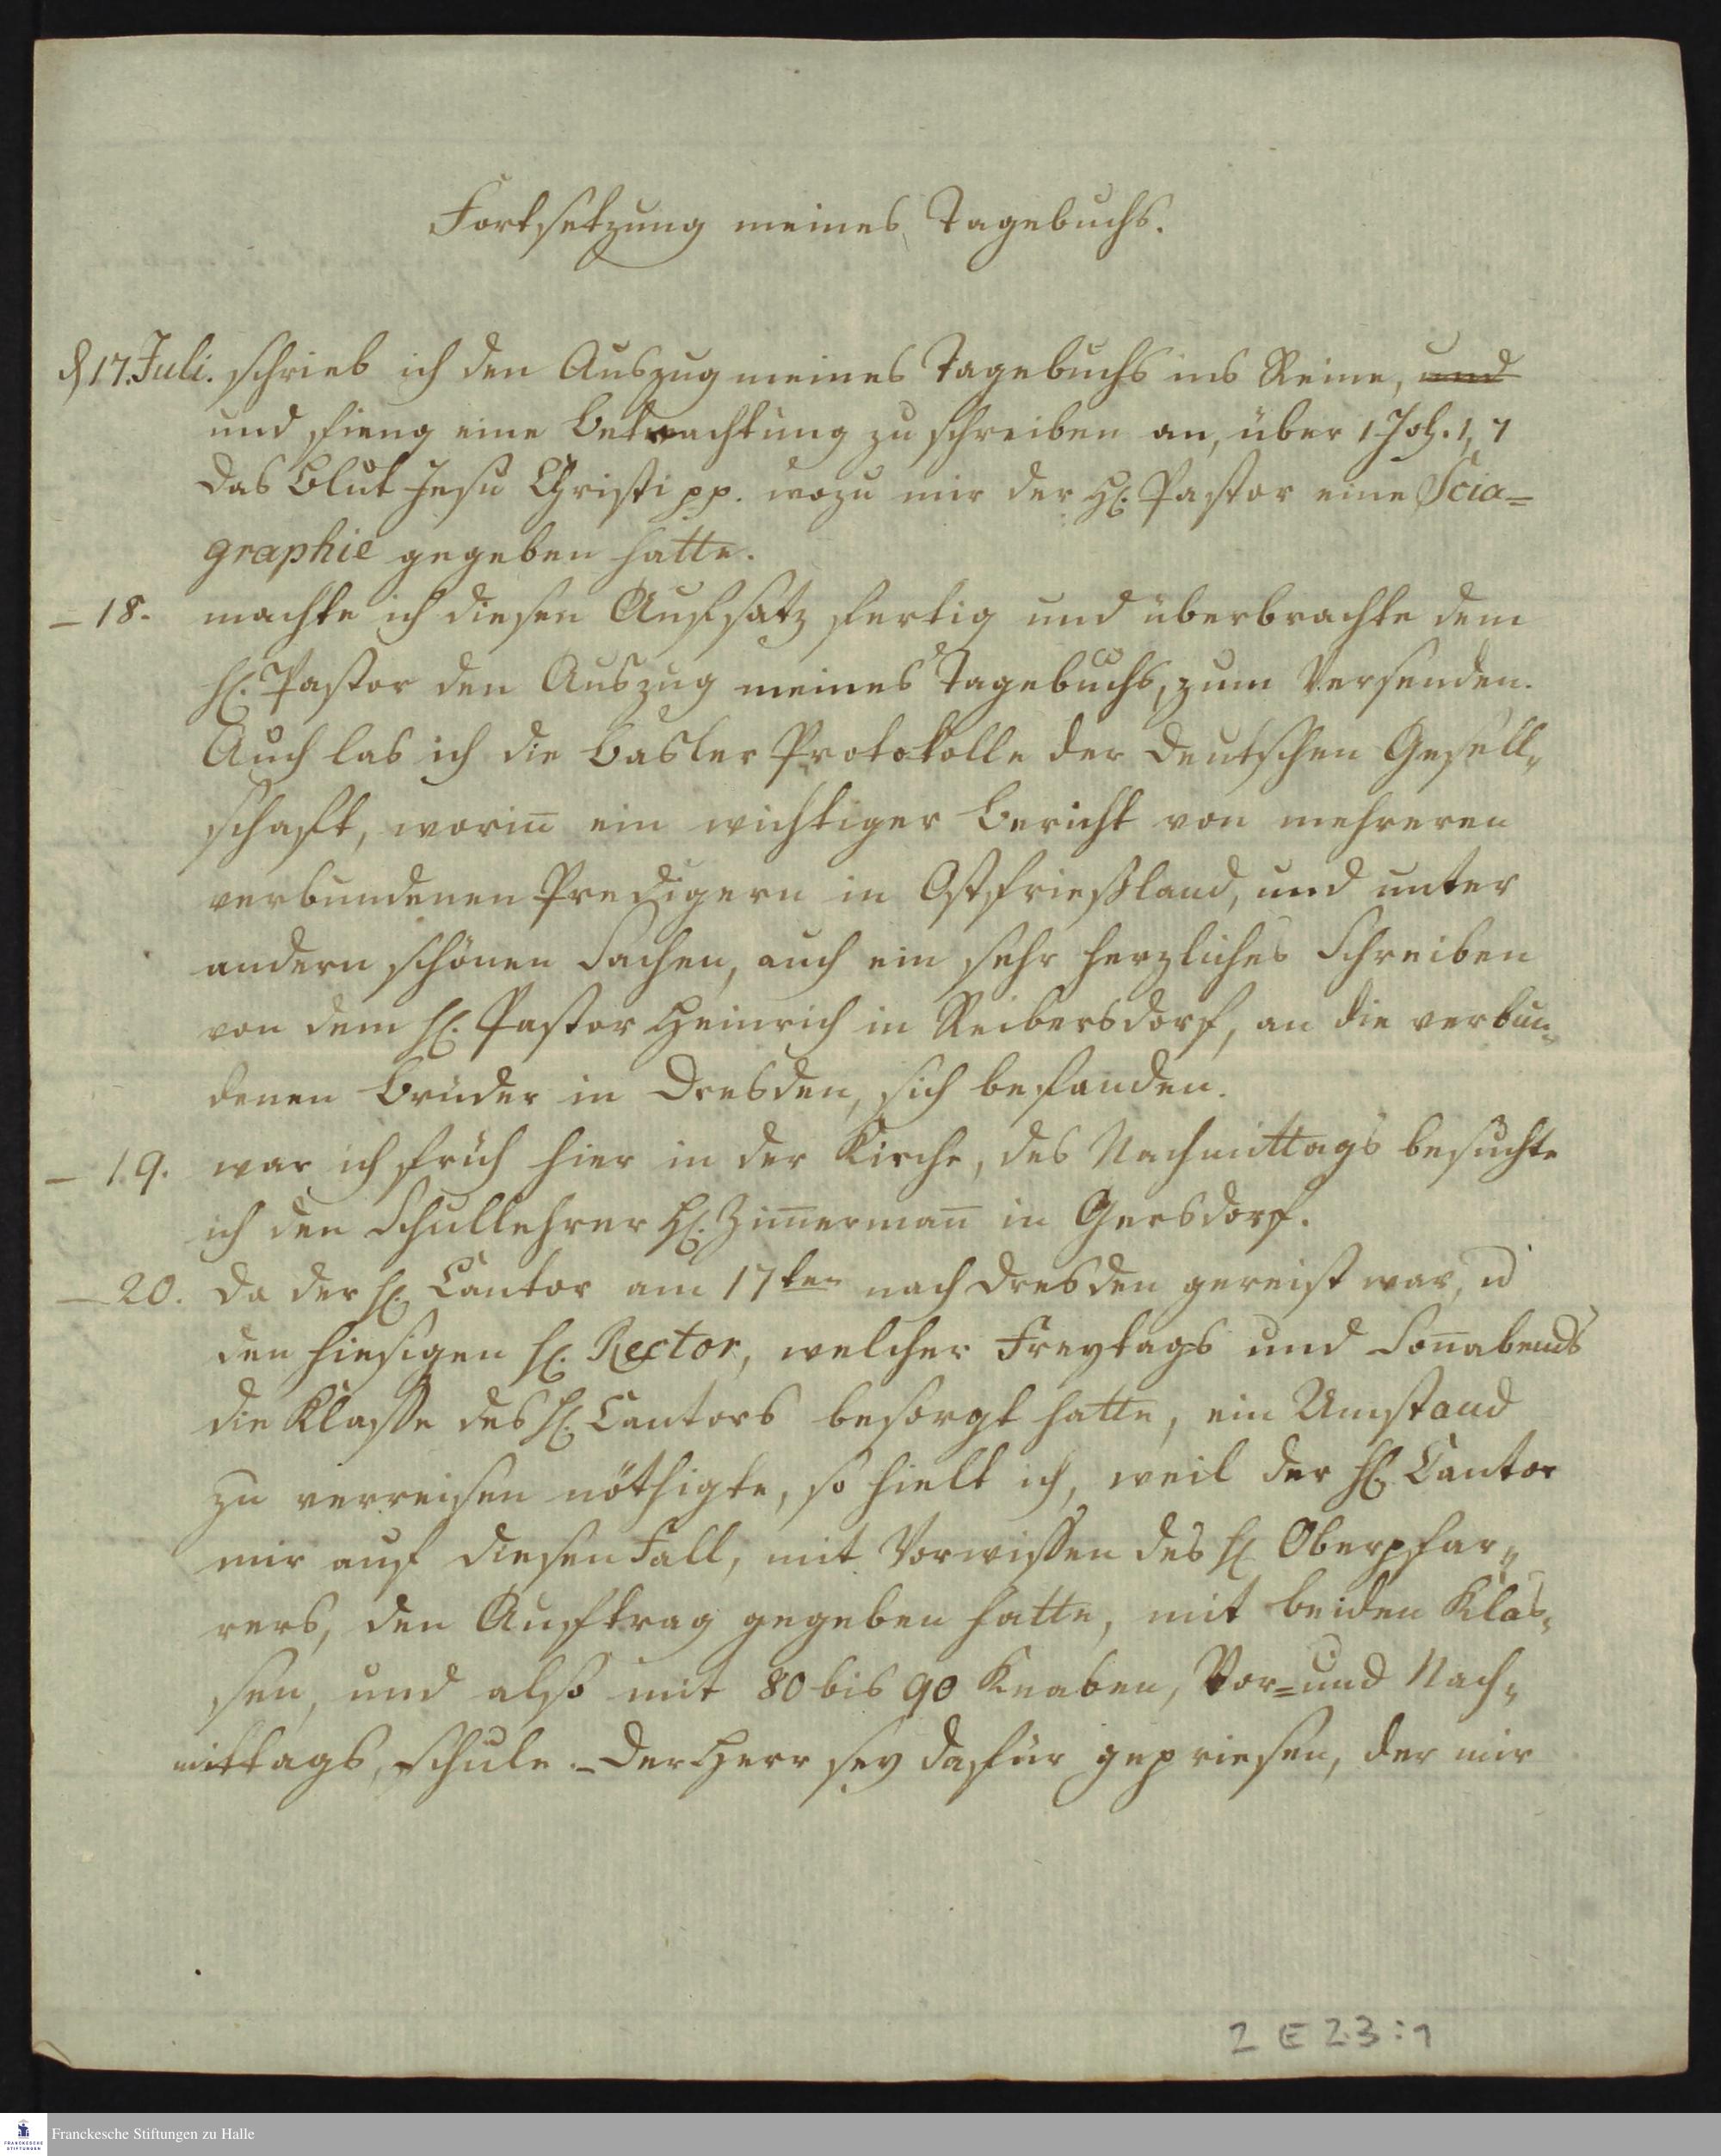 Fortsetzung meines Tagebuchs.
d 17. Juli. schrieb ich den Auszug meines Tagebuchs ins Reine, und
und fieng eine Betrachtung zu schreiben an, über 1 Joh. 1, 7
das Blut Jesu Christi pp. wozu mir der H. Pastor eine Scia=
graphie gegeben hatte.
— 18. machte ich diesen Aufsatz fertig und überbrachte dem
H. Pastor den Auszug meines Tagebuchs, zum Versenden.
Auch las ich die Basler Protokolle der deutschen Gesell=
schaft, worin̅ ein wichtiger Bericht von mehreren
verbundenen Predigern in Ostfrießland, und unter
andern schönen Sachen, auch ein sehr herzliches Schreiben
von dem H. Pastor Heinrich in Reibersdorf, an die verbun=
denen Brüder in Dresden, sich befanden.
— 19. war ich früh hier in der Kirche, des Nachmittags besuchte
ich den Schullehrer H. Zim̅erman̅ in Gersdorf.
— 20. Da der H. Cantor am 17ten nach Dresden gereist war, u
den hiesigen H. Rector, welcher Freytags und Son̅abends
die Klasse des H. Cantors besorgt hatte, ein Umstand
zu verreisen nöthigte, so hielt ich, weil der H. Cantor
mir auf diesen Fall, mit Vorwissen des H. Oberpfar=
rers, den Auftrag gegeben hatte, mit beiden Klas=
sen, und also mit 80 bis 90 Knaben, Vor= und Nach=
mittags, Schule. – Der Herr sey dafür gepriesen, der mir
2 E 23:1
FRANCKESCHE
STIFTUNGEN
Franckesche Stiftungen zu Halle